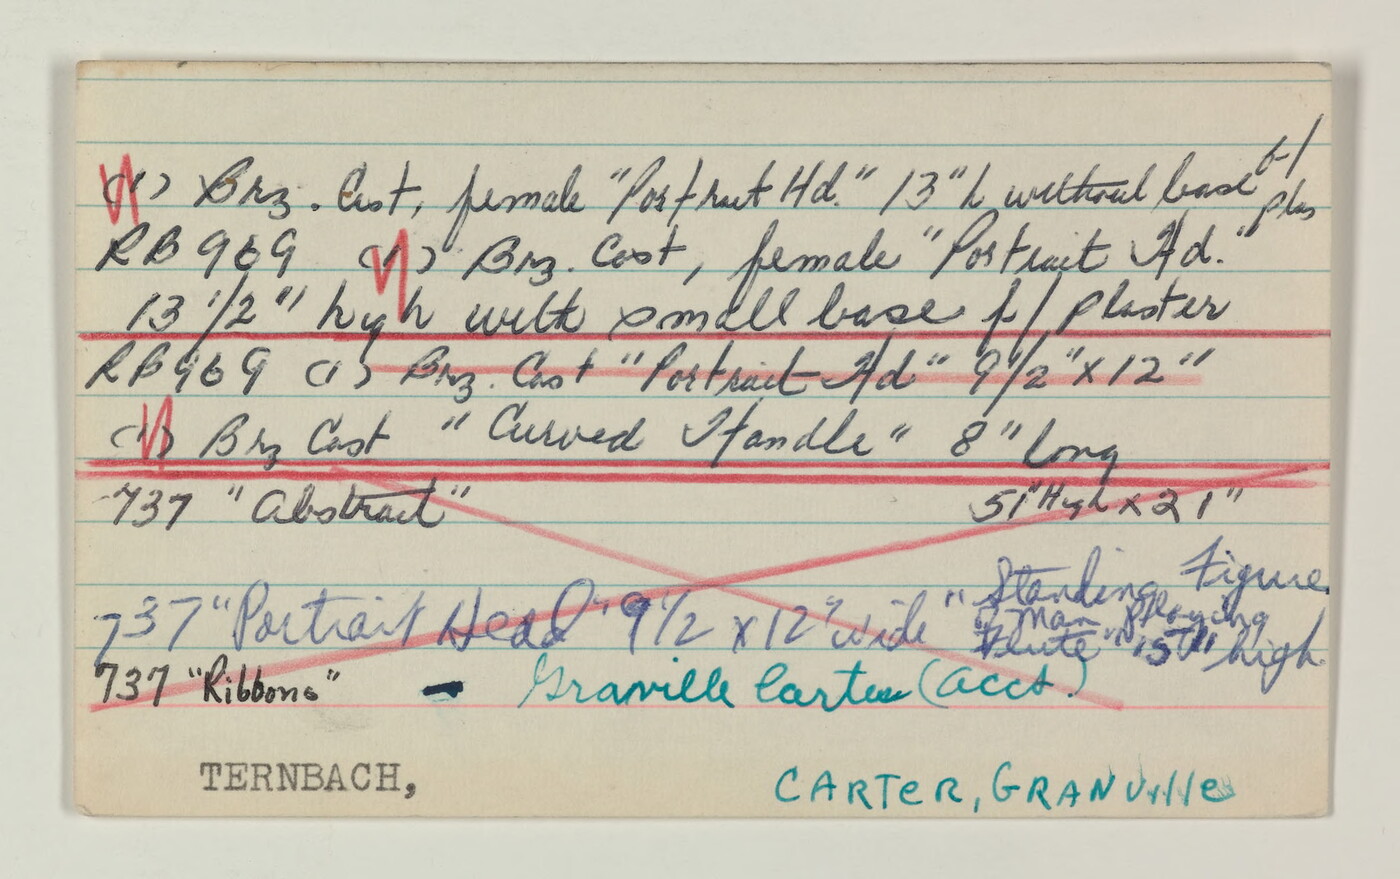 (1) Brz. Cast, female "Portrait Hd." 13"h without base f/ plas
RB969 (1) Brz. Cast, female "Portrait Hd."
13 1/2" high with small base f/ plaster
RB969 (1) Brz. Cast "Portrait Hd" 9 1/2" x 12"
(1) Brz Cast "Curved Handle" 8" long
737 "Abstract" 51" High x 21"
737 "Portrait Head" 9 1/2 x 12" wide "Standing Figure
Man Playing
Flute" high
737 "Ribbons" - Granville Carter (acct.)
TERNBACH, CARTER, GRANVille